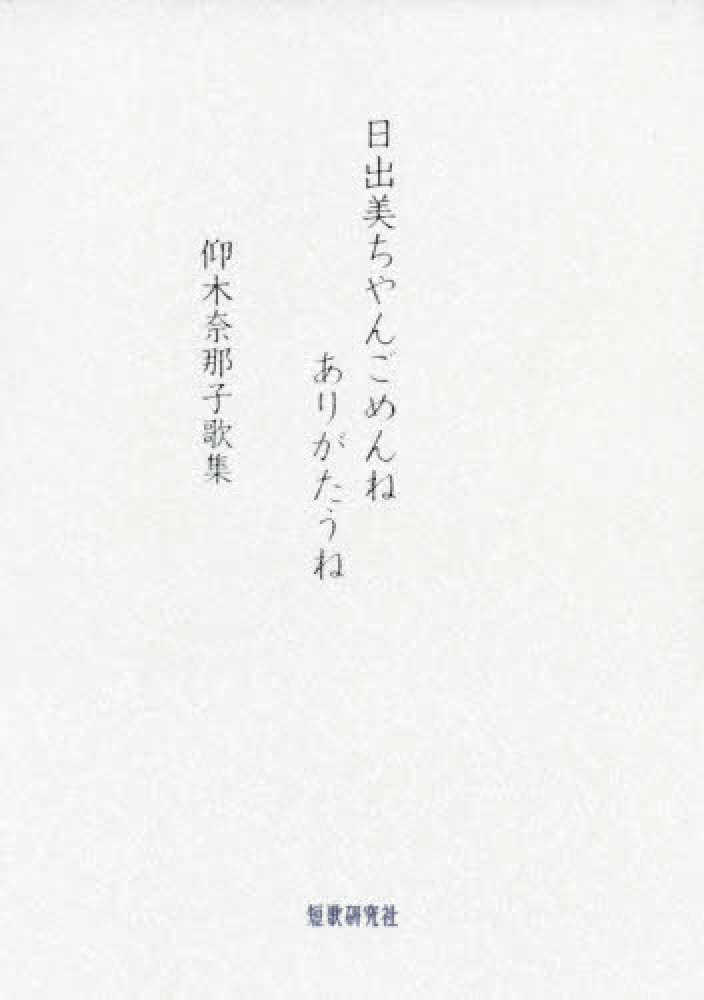 日出美ちやんごめんね
ありがたうね
仰木奈那子歌集
短歌研究社